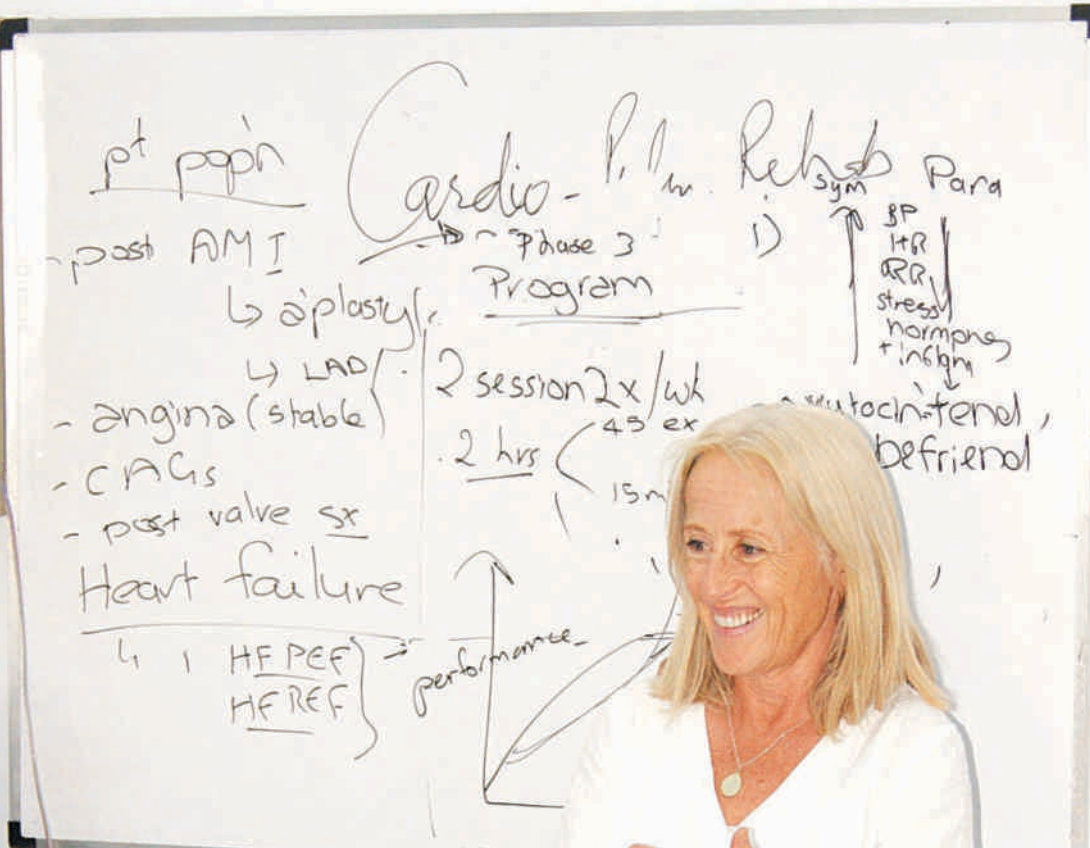 pt pop'n
Cardio - Rehab
- post AMI
↳ a'plasty
↳ LAD
- angina (stable)
- CAGs
- post valve sx
Heart failure
HFPEF
HFREF
Phase 3
Program
2 session 2x/wk
2 hrs
45 ex
15m
performance
1)
Sym Para
BP
HR
RR
stress
hormones
+ inflam
tend,
befriend